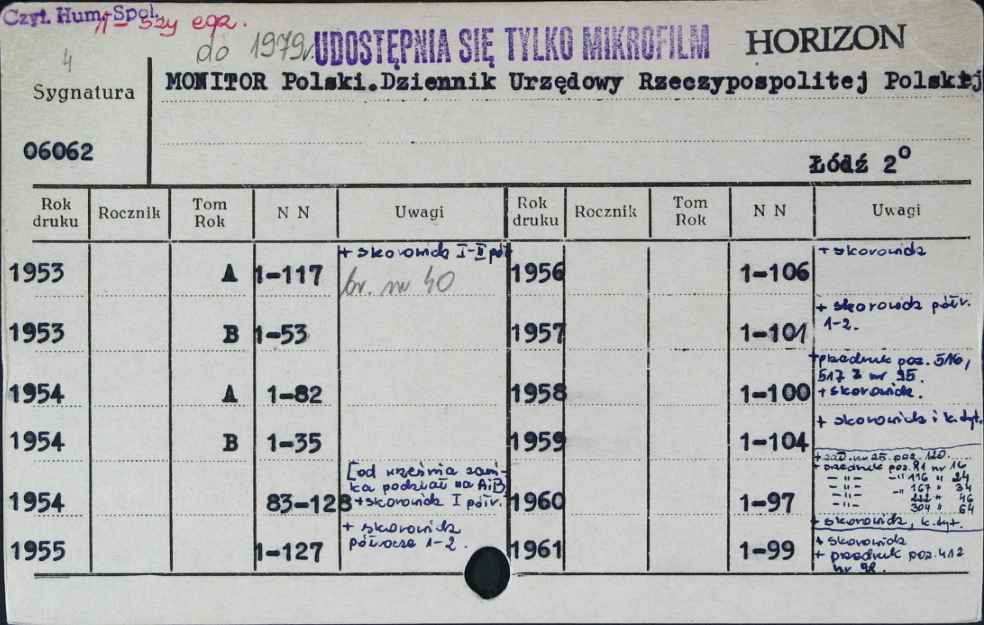 Czyt. Hum. Społ.
II-szy egz.
do 1979r.
UDOSTĘPNIA SIĘ TYLKO MIKROFILM
HORIZON
4
Sygnatura
06062
MONITOR Polski.Dziennik Urzędowy Rzeczypospolitej Polskiej
Łódź 2°
Rok druku Rocznik Tom Rok N N Uwagi Rok druku Rocznik Tom Rok N N Uwagi
1953 A 1-117 + skorowidz I-II pół
br. nr 40
1953 B 1-53
1954 A 1-82
1954 B 1-35
1954 83-128 [od września zani-
ka podział na A i B]
+ skorowidz I półr.
1955 1-127 + skorowidz
półrocze 1-2.
1956 1-106 + skorowidz
1957 1-101 + skorowidz półr.
1-2.
1958 1-100 + przedruk poz. 516,
517 z nr 95.
+ skorowidz.
1959 1-104 + skorowidz i k.tyt.
1960 1-97 + zał. nr 25. poz. 120.
+ przedruk poz. 81 nr 16
— " — — " 116 " 24
— " — — " 167 " 34
— " — 222 " 46
— " — 304 " 64
+ skorowidz, k.tyt.
1961 1-99 + skorowidz
+ przedruk poz. 412
nr 98.